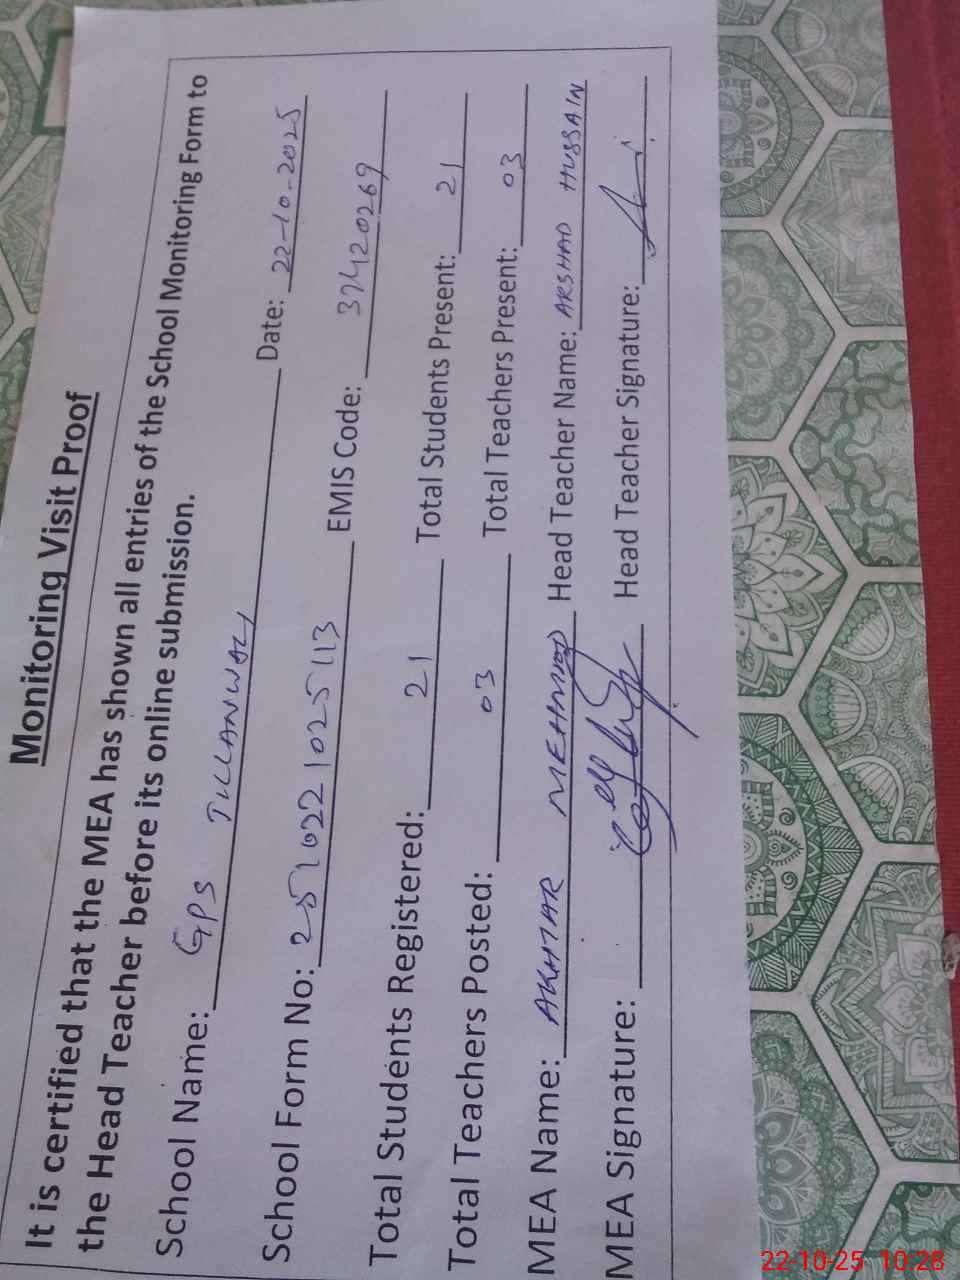 Monitoring Visit Proof
It is certified that the MEA has shown all entries of the School Monitoring Form to
the Head Teacher before its online submission.
School Name: GPS JULLANWALI Date: 22-10-2025
School Form No: 2510221025113 EMIS Code: 37420269
Total Students Registered: 21 Total Students Present: 21
Total Teachers Posted: 03 Total Teachers Present: 03
MEA Name: AKHTAR MEHMOOD Head Teacher Name: ARSHAD HUSSAIN
MEA Signature: Head Teacher Signature:
22-10-25 10:28